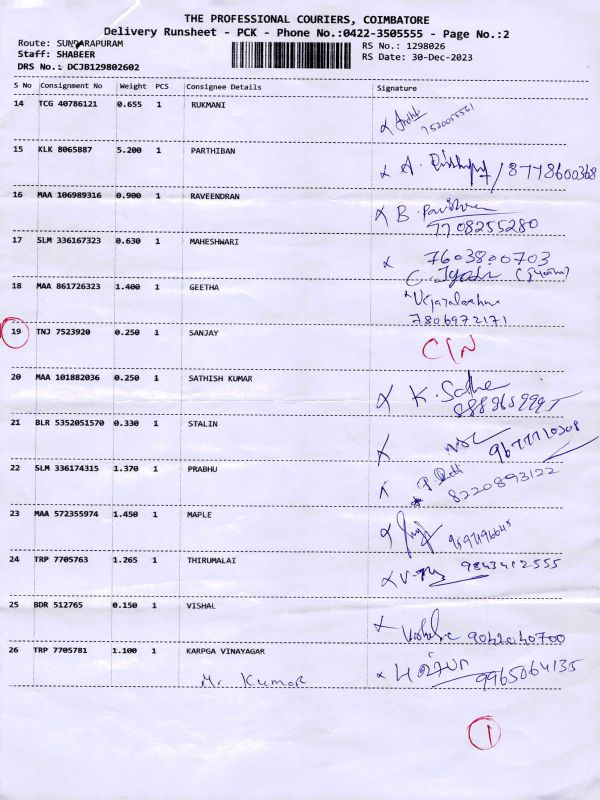 THE PROFESSIONAL COURIERS, COIMBATORE
Delivery Runsheet - PCK - Phone No.:0422-3505555 - Page No.:2
Route: SUNDARAPURAM
Staff: SHABEER
DRS No.: DCJB129802602
RS No.: 1298026
RS Date: 30-Dec-2023
S No Consignment No Weight PCS Consignee Details Signature
14 TCG 40786121 0.655 1 RUKMANI
7520055561
15 KLK 8065887 5.200 1 PARTHIBAN
A. /8778600368
16 MAA 106989316 0.900 1 RAVEENDRAN
B.
7708255280
17 SLM 336167323 0.630 1 MAHESHWARI
7603800703
18 MAA 861726323 1.400 1 GEETHA
7806972171
19 TNJ 7523920 0.250 1 SANJAY
C/N
20 MAA 101882036 0.250 1 SATHISH KUMAR
K.
21 BLR 5352051570 0.330 1 STALIN
22 SLM 336174315 1.370 1 PRABHU
8220893122
23 MAA 572355974 1.450 1 MAPLE
24 TRP 7705763 1.265 1 THIRUMALAI
9843412555
25 BDR 512765 0.150 1 VISHAL
9042040700
26 TRP 7705781 1.100 1 KARPGA VINAYAGAR
Mr Kumar 9965064135
1